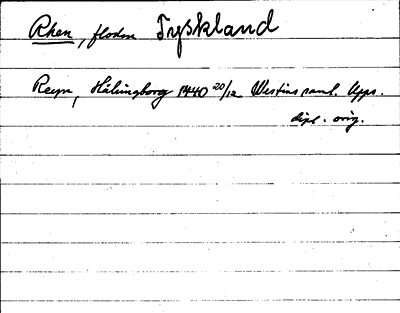 Rhen, floden Tyskland
Reyn, Hälsingborg 1440 20/12 Westins saml. Upps.
dipl. orig.